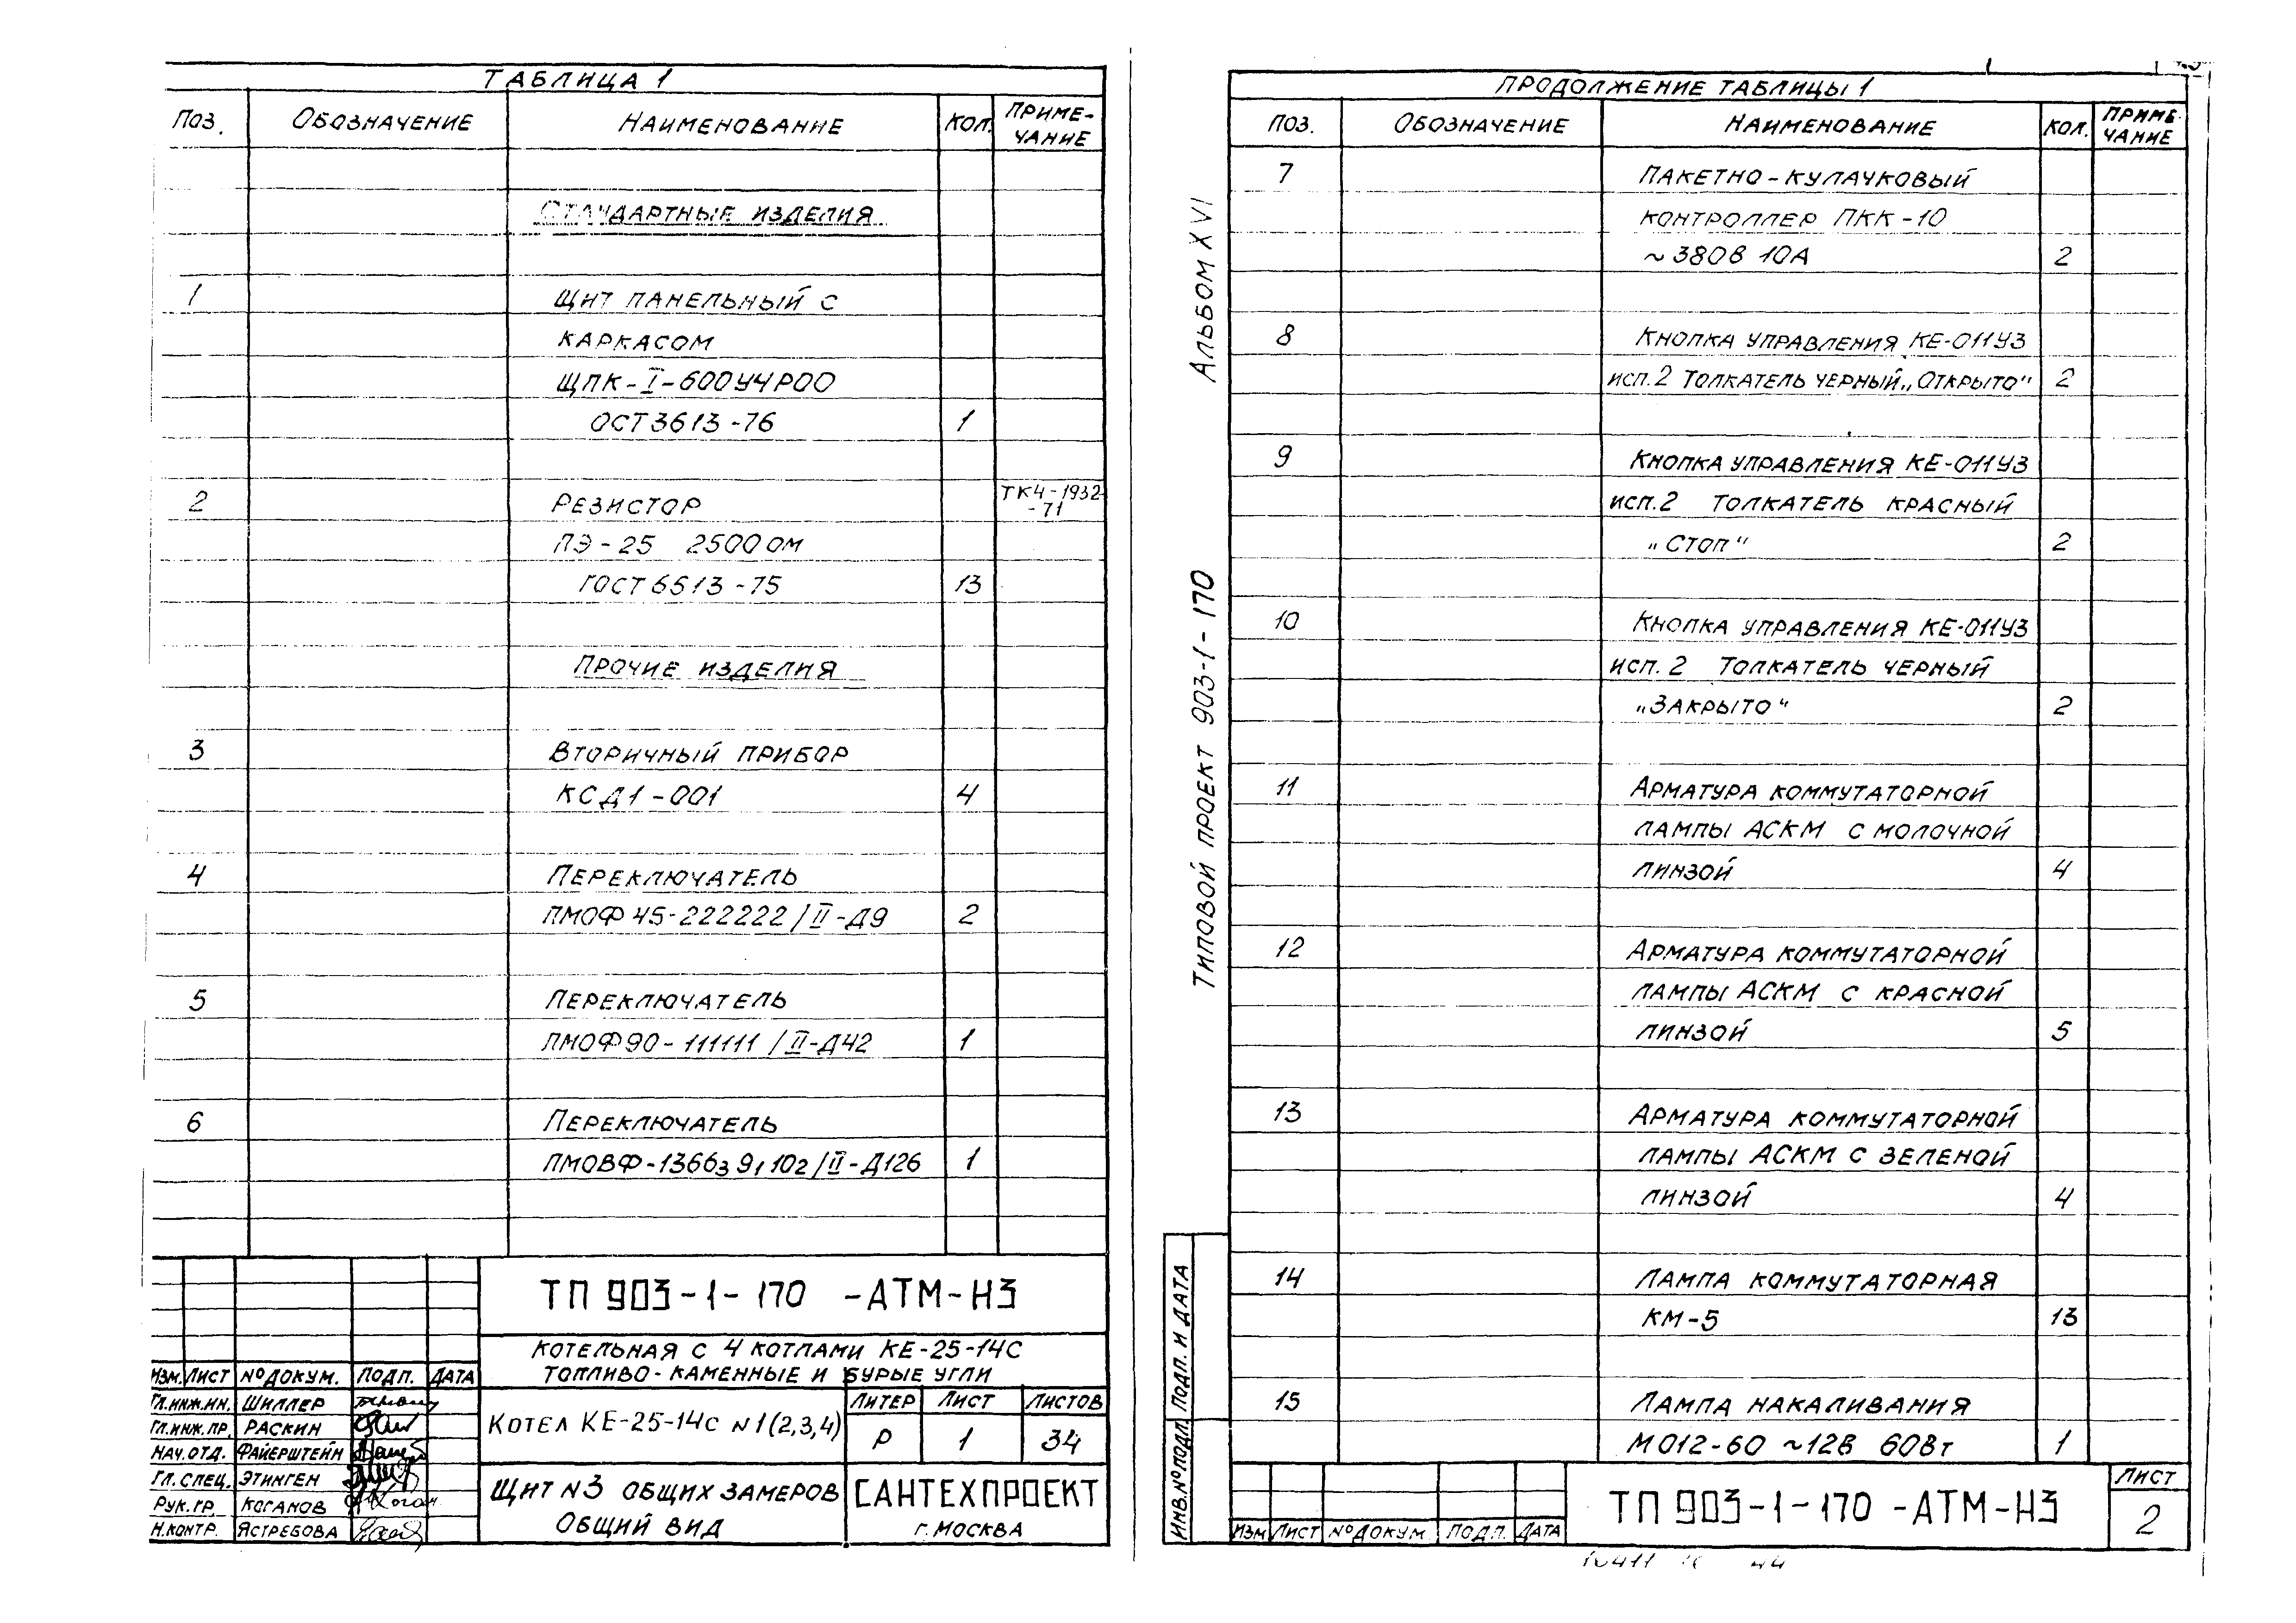 ТАБЛИЦА 1
ПОЗ. ОБОЗНАЧЕНИЕ НАИМЕНОВАНИЕ КОЛ. ПРИМЕ-
ЧАНИЕ
СТАНДАРТНЫЕ ИЗДЕЛИЯ
1 ЩИТ ПАНЕЛЬНЫЙ С
КАРКАСОМ
ЩПК-I-600У4Р00
ОСТ 36 13-76 1
2 РЕЗИСТОР ТК4-1932-
-71
ПЭ-25 2500 ОМ
ГОСТ 6513-75 13
ПРОЧИЕ ИЗДЕЛИЯ
3 ВТОРИЧНЫЙ ПРИБОР
КСД1-001 4
4 ПЕРЕКЛЮЧАТЕЛЬ
ПМОФ45-222222/II-Д9 2
5 ПЕРЕКЛЮЧАТЕЛЬ
ПМОФ90-111111/II-Д42 1
6 ПЕРЕКЛЮЧАТЕЛЬ
ПМОВФ-1366₃9₁10₂/II-Д126 1
ТП 903-1-170 -АТМ-Н3
КОТЕЛЬНАЯ С 4 КОТЛАМИ КЕ-25-14С
ТОПЛИВО-КАМЕННЫЕ И БУРЫЕ УГЛИ
ИЗМ. ЛИСТ № ДОКУМ. ПОДП. ДАТА
ГЛ.ИНЖ.ИН. ШИЛЛЕР
ГЛ.ИНЖ.ПР. РАСКИН
НАЧ.ОТД. ФАЙЕРШТЕЙН
ГЛ.СПЕЦ. ЭТИНГЕН
РУК.ГР. КОГАНОВ
Н.КОНТР. ЯСТРЕБОВА
КОТЕЛ КЕ-25-14С N1(2,3,4)
ЛИТЕР ЛИСТ ЛИСТОВ
Р 1 34
ЩИТ N3 ОБЩИХ ЗАМЕРОВ
ОБЩИЙ ВИД
САНТЕХПРОЕКТ
Г. МОСКВА
АЛЬБОМ XVI
ТИПОВОЙ ПРОЕКТ 903-1-170
ИНВ.№ПОДЛ. ПОДП. И ДАТА
ПРОДОЛЖЕНИЕ ТАБЛИЦЫ 1
ПОЗ. ОБОЗНАЧЕНИЕ НАИМЕНОВАНИЕ КОЛ. ПРИМЕ-
ЧАНИЕ
7 ПАКЕТНО-КУЛАЧКОВЫЙ
КОНТРОЛЛЕР ПКК-10
~380В 10А 2
8 КНОПКА УПРАВЛЕНИЯ КЕ-011У3
ИСП.2 ТОЛКАТЕЛЬ ЧЕРНЫЙ „ОТКРЫТО“ 2
9 КНОПКА УПРАВЛЕНИЯ КЕ-011У3
ИСП.2 ТОЛКАТЕЛЬ КРАСНЫЙ
„СТОП“ 2
10 КНОПКА УПРАВЛЕНИЯ КЕ-011У3
ИСП. 2 ТОЛКАТЕЛЬ ЧЕРНЫЙ
„ЗАКРЫТО“ 2
11 АРМАТУРА КОММУТАТОРНОЙ
ЛАМПЫ АСКМ С МОЛОЧНОЙ
ЛИНЗОЙ 4
12 АРМАТУРА КОММУТАТОРНОЙ
ЛАМПЫ АСКМ С КРАСНОЙ
ЛИНЗОЙ 5
13 АРМАТУРА КОММУТАТОРНОЙ
ЛАМПЫ АСКМ С ЗЕЛЕНОЙ
ЛИНЗОЙ 4
14 ЛАМПА КОММУТАТОРНАЯ
КМ-5 13
15 ЛАМПА НАКАЛИВАНИЯ
МО12-60 ~12В 60Вт 1
ИЗМ ЛИСТ № ДОКУМ. ПОДП. ДАТА
ТП 903-1-170 -АТМ-Н3
ЛИСТ
2
44